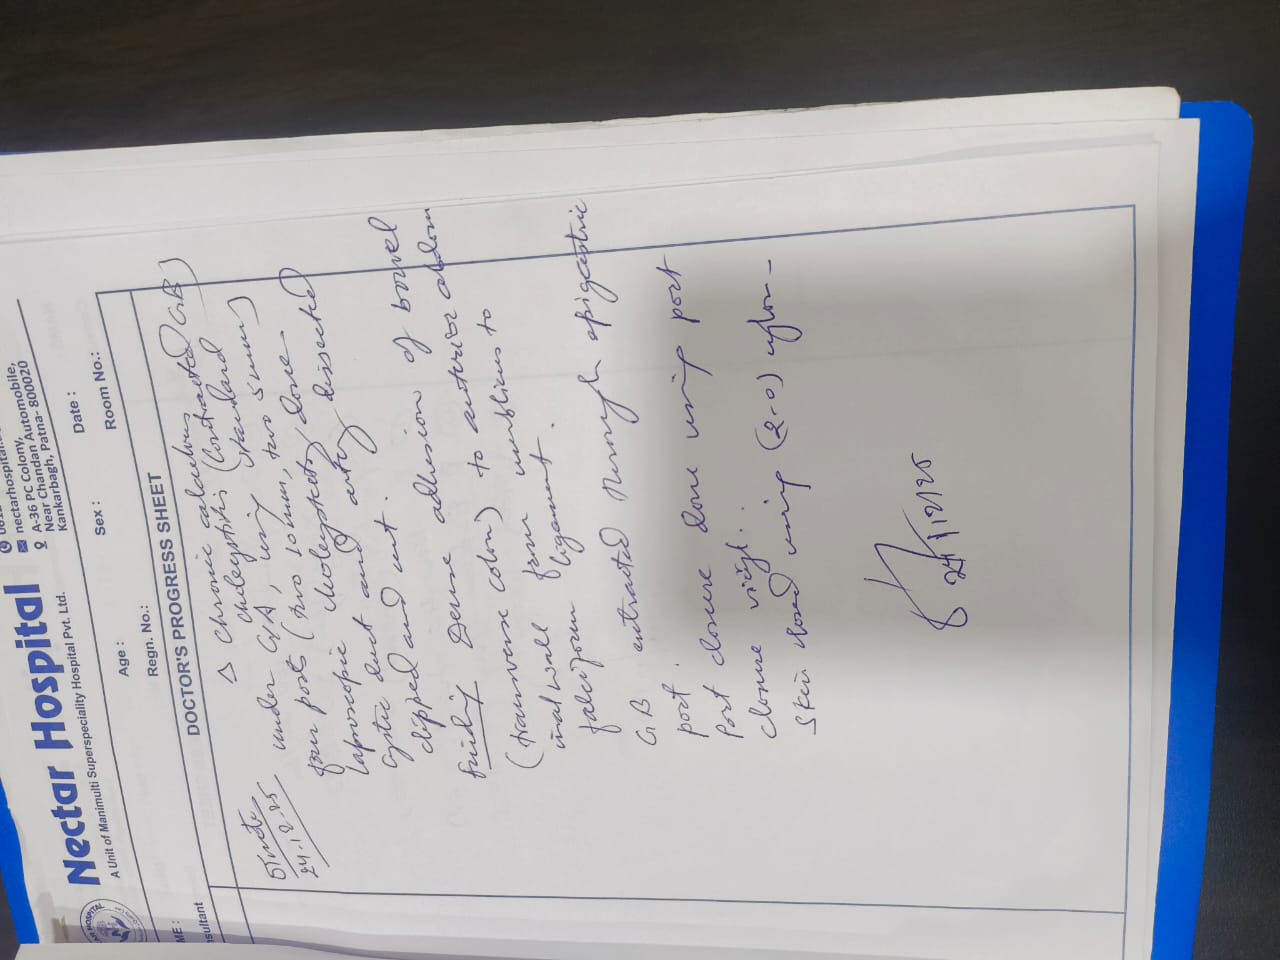 Nectar Hospital
A Unit of Manimulti Superspeciality Hospital Pvt. Ltd.
nectarhospital.
A-36 PC Colony,
Near Chandan Automobile,
Kankarbagh, Patna- 800020
ME :
Age :
Sex :
Date :
sultant
Regn. No.:
Room No.:
DOCTOR'S PROGRESS SHEET
24.12.25
△ Chronic calculous
cholecystitis (contracted GB)
under GA, using standard
four ports (two 10 mm, two 5mm)
laproscopic done
cystic duct and artery dissected
clipped and cut.
finding Dense adhesion of bowel
(transverse colon) to anterior abdom
inal wall from umblicus to
falciform ligament.
GB extracted through epigastric
port.
Port closure done using port
closure vicryl.
Skin closed using (2-0) nylon -
24/12/25